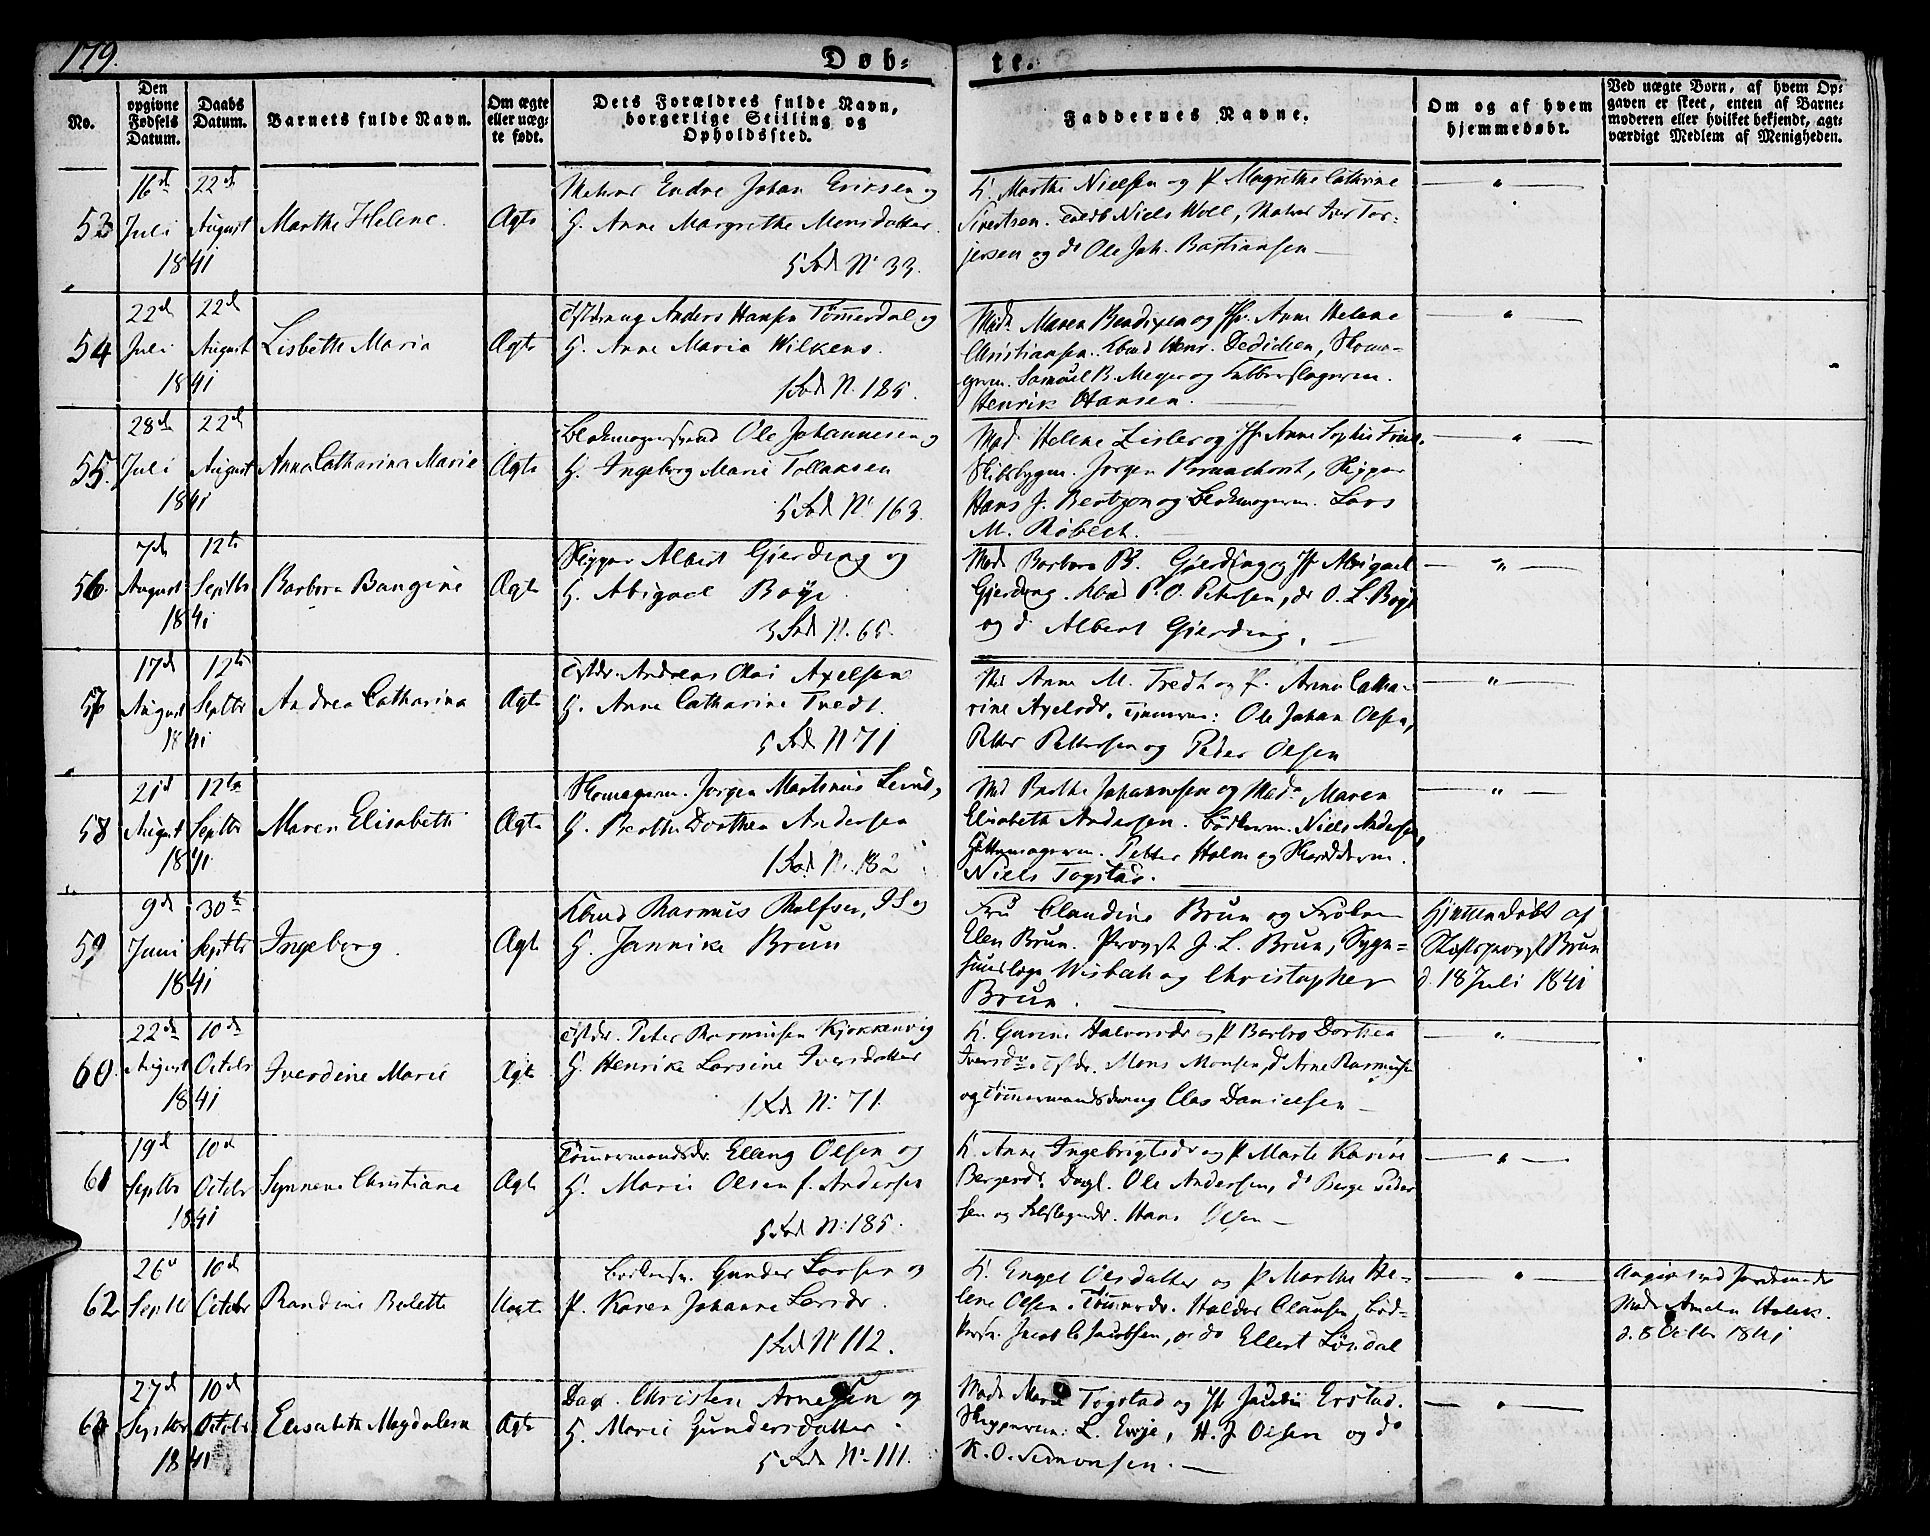 179.
Døb-
te.
No.
Den opgivne Fødsels Datum.
Daabs Datum.
Barnets fulde Navn.
Om ægte eller uægte født.
Dets Forældres fulde Navn, borgerlige Stilling og Opholdssted.
Faddernes Navne.
Om og af hvem hjemmedøbt.
Ved uægte Børn, af hvem Opgaven er skeet, enten af Barnemoderen eller hvilket bekjendt, agtværdigt Medlem af Menigheden.
53 16d Juli 1841 22d August Marthe Helene. Ægte
Endre Johan Eriksen og
H. Anne Margrethe Monsdatter.
5 Rod N. 33.
K. Marthe Nielsen og P. Magrethe Cathrine
Sivertsen. Niels Woll, Iver Tor-
jersen og do Ole Joh. Bastiansen —
54 22d Juli 1841 22d August Lisbeth Maria Ægte
Anders Hansen Tømerdal og
H. Anne Maria Wilkens.
1 Rod N. 185.
Mad. Maren Bendixen og Jfr. Anne Helene
Christiansen. Skoma-
germ. Samuel B. Meyer og
Henrik Hansen.
55. 28d Juli 1841 22d August Anna Catharina Marie Ægte
Ole Johannesen og
H. Ingeborg Marie Tollaksen
5 Rod N. 163.
Mad. Helene Zisler og Jfr. Anne Sophie
Skibsbygm. Jørgen Skipper
Hans J. Berntzen og Blokmagerm. Lars
M. Robeck.
56. 7d August 1841 12te Septbr Barbara Bangine Ægte
Skipper Albert Gjerding og
H. Abigael Boye.
3 Rod N. 65.
Mad. Barbara B. Gjerding og Jfr Abigael
Gjerding. P. O. Petersen, do O. L. Boye
og do Albert Gjerding.
57 17d August 1841 12te Septbr Andrea Catharina Ægte
Andreas Axelsen
H. Anne Catharine Tredt.
5 Rod N. 71
Anne M. Tredt og P. Anne Catha-
rine Axelsdr. Ole Johan Olsen,
Petter Pettersen og Peder Olsen
58 21d August 1841 12te Septbr Maren Elisabeth Ægte
Skomagerm. Jørgen Martinus Lund,
H. Berthe Dorthea Andersen
1 Rod N. 182
Mad Berthe Johannesen og Mad. Maren
Elisabeth Andersen. Bødkerm. Niels Andersen,
Petter Holm og Skrædderm.
Niels Togstad.
59 9d Juni 1841 30te Septbr Ingeborg. Ægte
Kbmd Rasmus Rolfsen, og
H. Jannike Brun
Fru Claudine Brun og Frøken
Elen Brun. Provst J. L. Brun, Syge-
huuslæge Wisbeck og Christopher
Brun.
Hjemmedøbt af
Stiftsprovst Brun
d. 18 Juli 1841
60. 22d August 1841 10de Octobr Iverdine Marie Ægte
Peter Rasmusen Kjøkkenvig
H. Henrike Larsine Iversdatter
1 Rod N. 71.
K. Gurine Halvorsdr og P Barbro Dorthea
Iversdr. Mons Monsen, do Arne Rasmusen
og Tømermandsdreng Clas Danielsen —
61 19d Septbr 1841 10d Octobr Synneve Christiane Ægte
Tømermandsdr. Elling Olsen og
H. Marie Olsen f. Andersen
5 Rod N. 185.
K. Anne Ingebrigtsdr og P Marte Karine
Bergersdr. Dagl. Ole Andersen, do Berge Peder-
sen og Hans Olsen —
62 26d Septbr 10d Octobr Randine Bolette Uægte
Gunder Larsen og
P. Karen Johanne Larsdr.
1 Rod N 112.
K. Engel Olsdatter og P Marthe He-
lene Olsen. Tømerdr. Halder Clausen, Bød-
Jacob C. Jacobsen, og do Ellert Løndal
Angivet ved Jordemoder
Mad. Amalia Holck.
d. 8 Octbr 1841
63 27d Septbr 1841 10d Octobr Elisabeth Magdalena Ægte
Dag. Christen Arnesen og
H. Marie Gundersdatter
5 Rod N. 111.
Mad. Marie Togstad og Jfr Jacobie Erstad.
Skipperm: L. Ewje, H. J Olsen og do
K. O. Simonsen. —